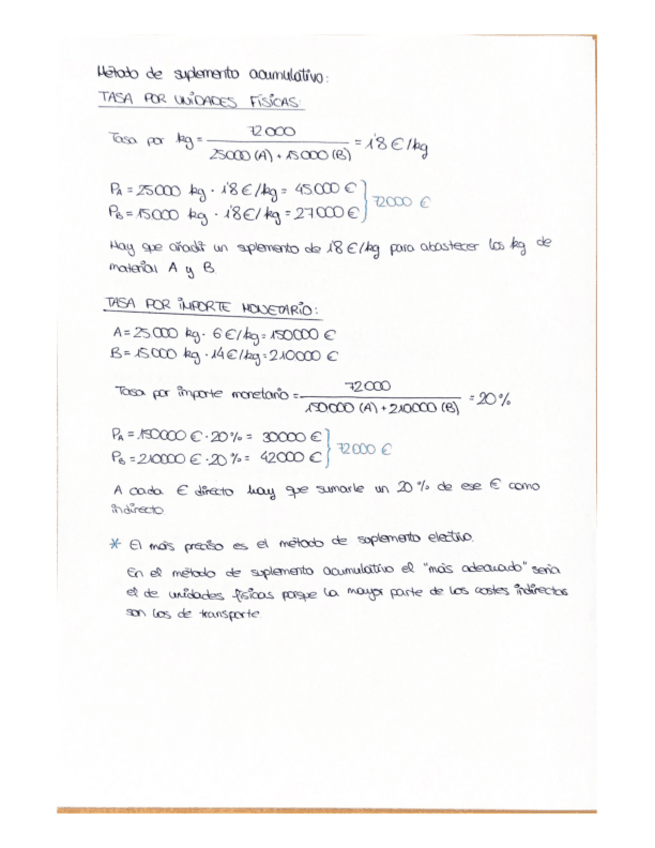 Método de suplemento acumulativo:
TASA POR UNIDADES FÍSICAS:
Tasa por kg = 72000 / 25000 (A) + 15000 (B) = 1'8 €/kg
PA = 25000 kg · 1'8 €/kg = 45000 €
PB = 15000 kg · 1'8 €/kg = 27000 € } 72000 €
Hay que añadir un suplemento de 1'8 €/kg para abastecer los kg de
material A y B
TASA POR IMPORTE MONETARIO:
A = 25000 kg · 6 €/kg = 150000 €
B = 15000 kg · 14 €/kg = 210000 €
Tasa por importe monetario = 72000 / 150000 (A) + 210000 (B) = 20 %
PA = 150000 € · 20 % = 30000 €
PB = 210000 € · 20 % = 42000 € } 72000 €
A cada € directo hay que sumarle un 20 % de ese € como
indirecto
* El más preciso es el método de suplemento electivo.
En el método de suplemento acumulativo el "más adecuado" sería
el de unidades físicas porque la mayor parte de los costes indirectos
son los de transporte.